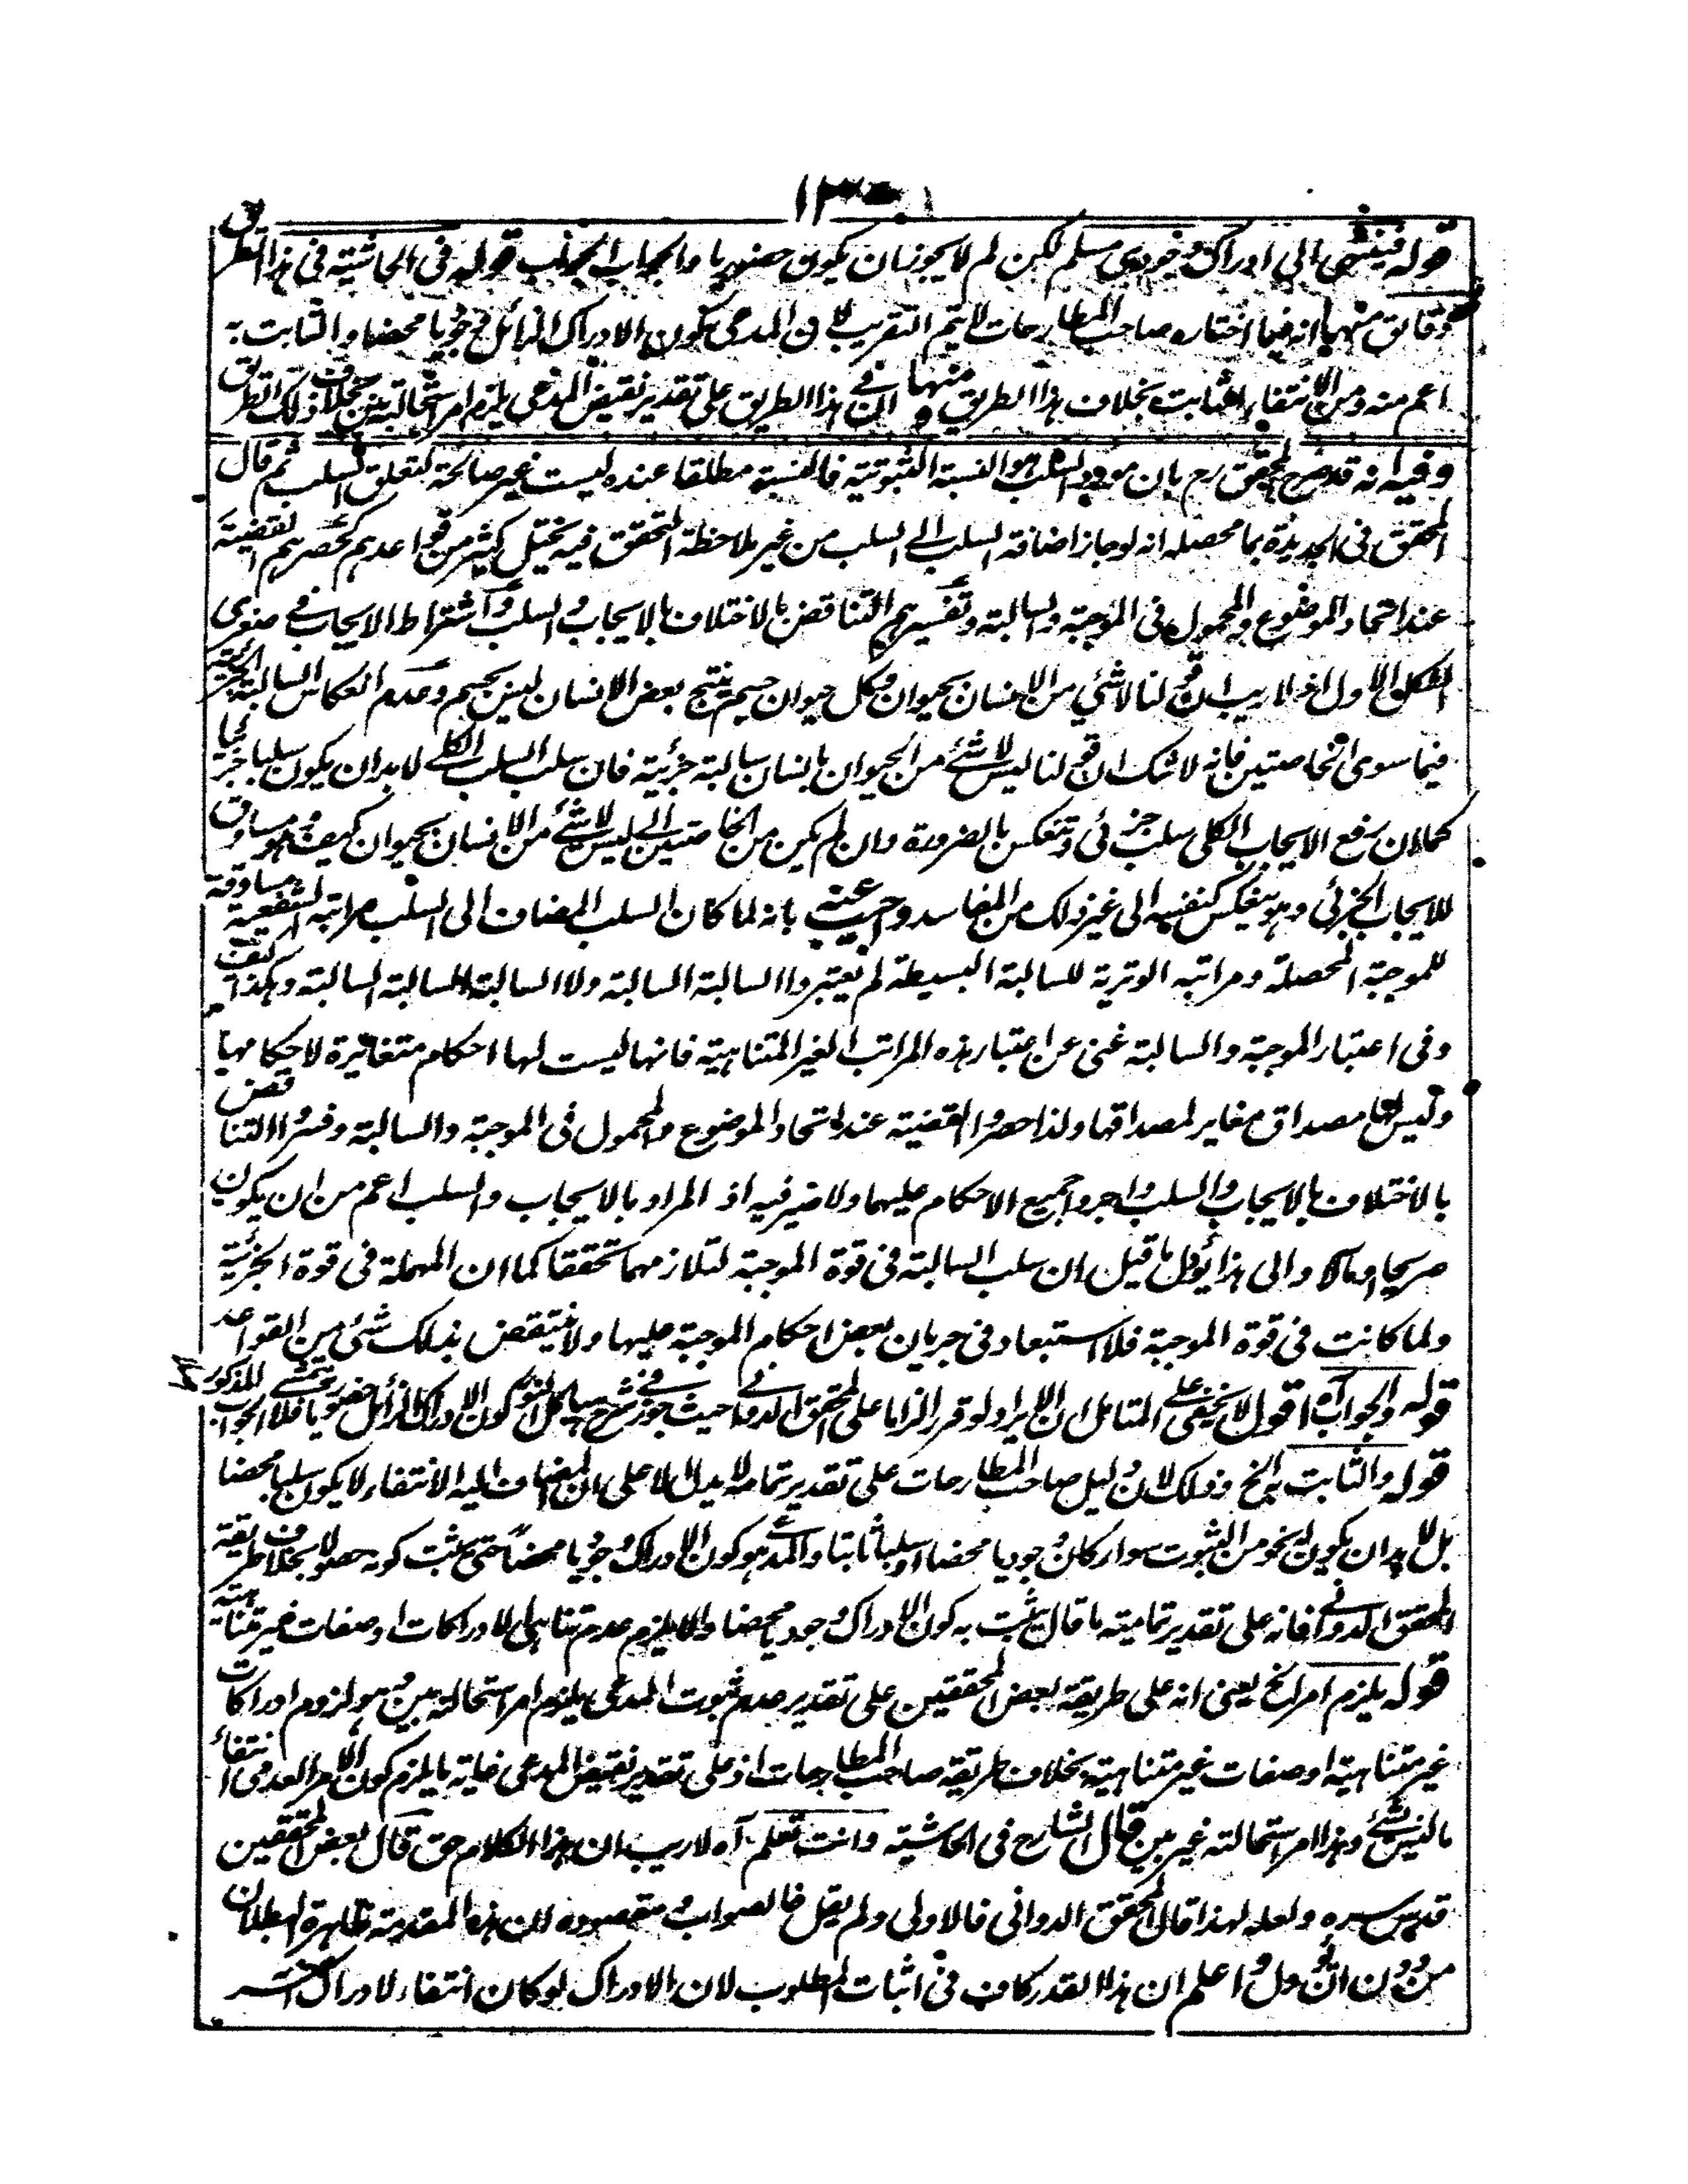 ١٣٠
قوله فينتهى الى ادراك وجودى مسلم لكن لم لا يجوز ان يكون حضوريا والجواب الجواب قوله فى الحاشية فى هذا الطريق
دقائق منها انه فيما اختاره صاحب المطارحات لا يتم التقريب لان المدعى كون الادراك الزائل وجوديا محضا والثابت به
اعم منه ومن الانتفاء الثابت بخلاف هذا الطريق ومنها ان فى هذا الطريق على تقدير نقيض المدعى يلزم امر استحالته بين بخلاف ذلك الطريق
وفيه انه قد صرح المحقق رح بان مورد السلب هو النسبة الثبوتية فالنسبة مطلقا عنده ليست غير صالحة لتعلق السلب ثم قال
المحقق فى الجديدة بما محصله انه لو جاز اضافة السلب الى السلب من غير ملاحظة التحقق فيه يختل كثير من قواعدهم كحصرهم القضية
عند اتحاد الموضوع والمحمول فى الموجبة والسالبة وتفسيرهم التناقض بالاختلاف بالايجاب والسلب واشتراط الايجاب فى صغرى
الشكل الاول اذ لا ريب ان قولنا لا شئ من الانسان بحيوان وكل حيوان جسم ينتج بعض الانسان ليس بجسم وعدم انعكاس السالبة الجزئية
فيما سوى الخاصتين فانه لا شك ان قولنا ليس لا شئ من الحيوان بانسان سالبة جزئية فان سلب السلب الكلى لا بد ان يكون سلبا جزئيا
كما ان رفع الايجاب الكلى سلب جزئى وتنعكس بالضرورة وان لم يكن من الخاصتين الى ليس لا شئ من الانسان بحيوان كيف وهو مساوق
للايجاب الجزئى وهو ينعكس كنفسه الى غير ذلك من المفاسد واجيب عنه بانه لما كان السلب المضاف الى السلب مراتبه الشفعية مساوقة
للموجبة المحصلة ومراتبه الوترية للسالبة البسيطة لم يعتبروا السالبة السالبة ولا السالبة السالبة السالبة وهكذا كيف
وفى اعتبار الموجبة والسالبة غنى عن اعتبار هذه المراتب الغير المتناهية فانها ليست لها احكام متغائرة لاحكامهما
وليس لها مصداق مغاير لمصداقهما ولذا حصروا القضية عند اتحاد الموضوع والمحمول فى الموجبة والسالبة وفسروا التناقض
بالاختلاف بالايجاب والسلب واجروا جميع الاحكام عليهما ولا ضير فيه اذ المراد بالايجاب والسلب اعم من ان يكون
صريحا او مآلا والى هذا يؤول ما قيل ان سلب السالبة فى قوة الموجبة لتلازمهما تحققا كما ان المهملة فى قوة الجزئية
ولما كانت فى قوة الموجبة فلا استبعاد فى جريان بعض احكام الموجبة عليها ولا ينتقض بذلك شئ من القواعد
قوله والجواب آه اقول لا يخفى على المتامل ان الايراد لو قرر الزاما على المحقق الدوانى حيث جوز فى شرح هياكل النور كون الادراك الزائل حضوريا فلا يتمشى الجواب المذكور
قوله والثابت به الخ وذلك لان دليل صاحب المطارحات على تقدير تمامه لا يدل الا على ان المضاف اليه الانتفاء لا يكون سلبا محضا
بل لا بد ان يكون له نحو من الثبوت سواء كان وجوديا محضا او سلبا ثابتا والمدعى هو كون الادراك وجوديا محضا حتى يثبت كونه حصوليا بخلاف طريقة
المحقق الدوانى فانه على تقدير تماميته ما قال يثبت به كون الادراك وجوديا محضا والا يلزم عدم تناهى الادراكات او صفات غير متناهية
قوله يلزم امر الخ يعنى انه على طريقة بعض المحققين على تقدير عدم ثبوت المدعى يلزم امر استحالته بين وهو لزوم ادراكات
غير متناهية او صفات غير متناهية بخلاف طريقة صاحب المطارحات اذ على تقدير نقيض المدعى غاية ما يلزم كون الامر العدمى انتفاء
ما ليس بشئ وهذا امر استحالته غير بين قال الشارح فى الحاشية وانت تعلم آه لا ريب ان هذا الكلام حق قال بعض المحققين
قدس سره ولعله لهذا قال المحقق الدوانى فالاولى ولم يقل فالصواب ومقصوده ان هذه المقدمة ظاهرة البطلان
من دون ان واعلم ان هذا القدر كاف فى اثبات المطلوب لان الادراك لو كان انتفاء لادراك آخر